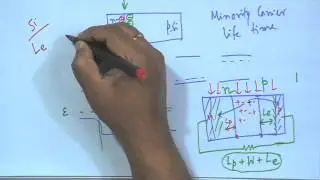 Si
Le
n
p Si
Minority Carrier
Life time
n p
Lp Le
Lp + W + Le